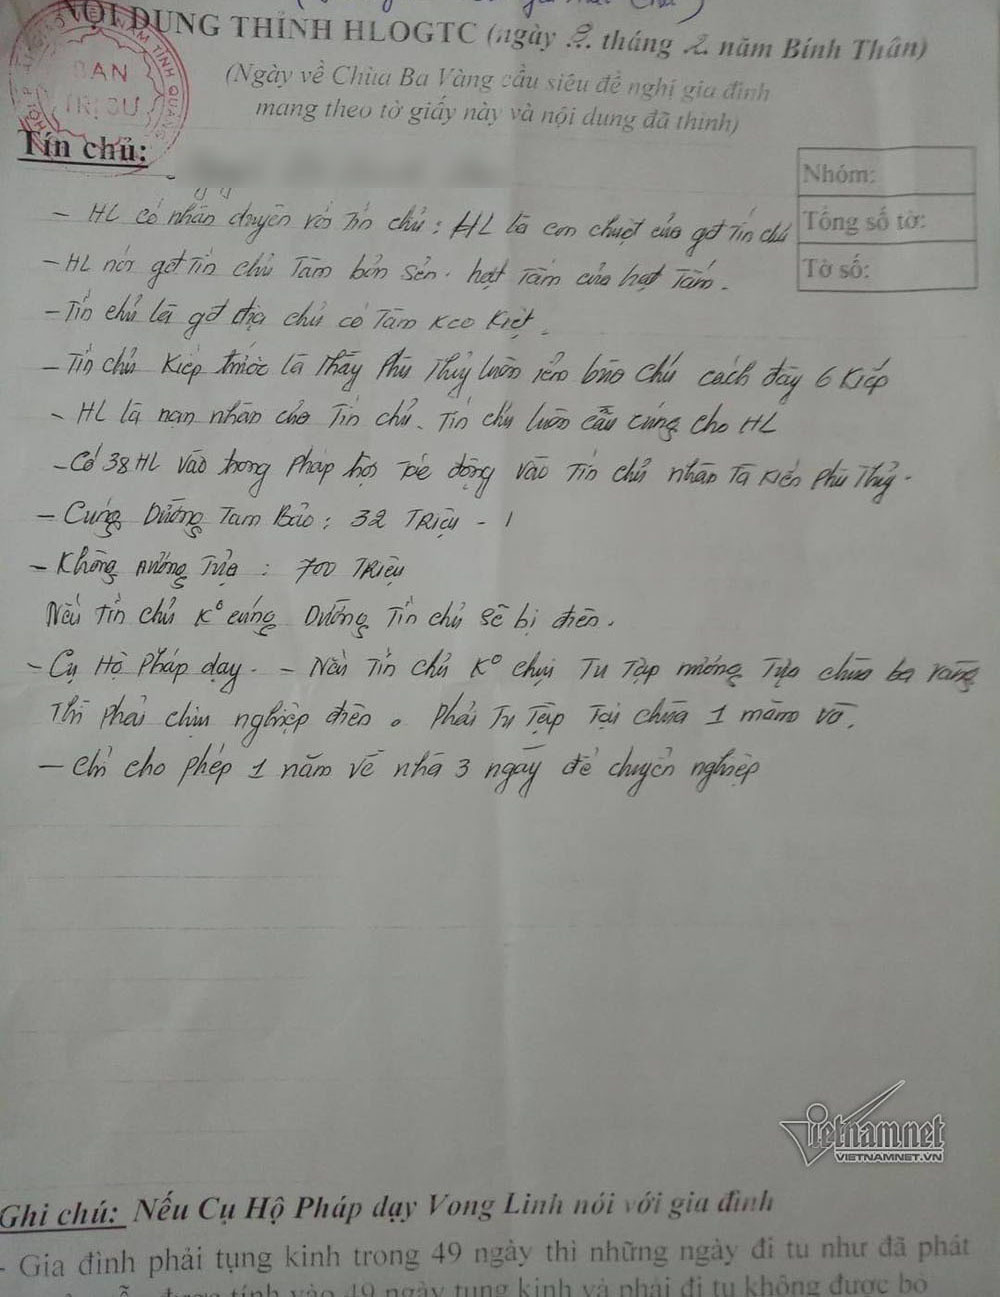 NỘI DUNG THỈNH HLOGTC (ngày 2. tháng 2. năm Bính Thân)
(Ngày về Chùa Ba Vàng cầu siêu đề nghị gia đình
mang theo tờ giấy này và nội dung đã thỉnh)
BAN TRỊ SỰ
Tín chủ:
Nhóm:
Tổng số tờ:
Tờ số:
- HL có nhân duyên với Tín chủ: HL là con chuột của gđ Tín chủ
- HL nói gđ Tín chủ Tâm bỏn sẻn. hạt Tấm của hạt Tấm.
- Tín chủ là gđ địa chủ có Tâm keo kiệt.
- Tín chủ kiếp trước là Thầy Phù Thủy luôn yểm bùa chú cách đây 6 kiếp
- HL là nạn nhân của Tín chủ. Tín chủ luôn cầu cúng cho HL
- Có 38 HL vào trong Pháp hội tác động vào Tín chủ nhân Tà kiến Phù Thủy.
- Cúng Dường Tam Bảo: 32 Triệu - 1
- Không nương Tựa: 700 Triệu
Nếu Tín chủ K° cúng Dường Tín chủ sẽ bị điên.
- Cụ Hộ Pháp dạy. - Nếu Tín chủ K° chịu Tu Tập nương Tựa chùa ba vàng
Thì Phải chịu nghiệp điên. Phải Tu Tập Tại chùa 1 năm
- chỉ cho phép 1 năm về nhà 3 ngày để chuyển nghiệp
Vietnamnet
VIETNAMNET.VN
Ghi chú: Nếu Cụ Hộ Pháp dạy Vong Linh nói với gia đình
- Gia đình phải tụng kinh trong 49 ngày thì những ngày đi tu như đã phát
được tính vào 49 ngày tụng kinh và phải đi tu không được bỏ